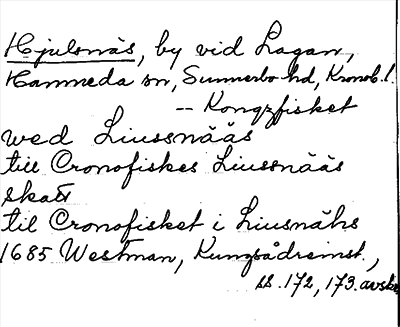 Hjulsnäs, by vid Lagan,
Hamneda sn, Sunnerbo hd, Kronob. l.
-- Kongzfisket
wed Liussnääs
till Cronofiskes Liussnääs
skatt
til Cronofisket i Liusnähs
1685 Westman, Kungsådreinst.,
ss. 172, 173. avskr